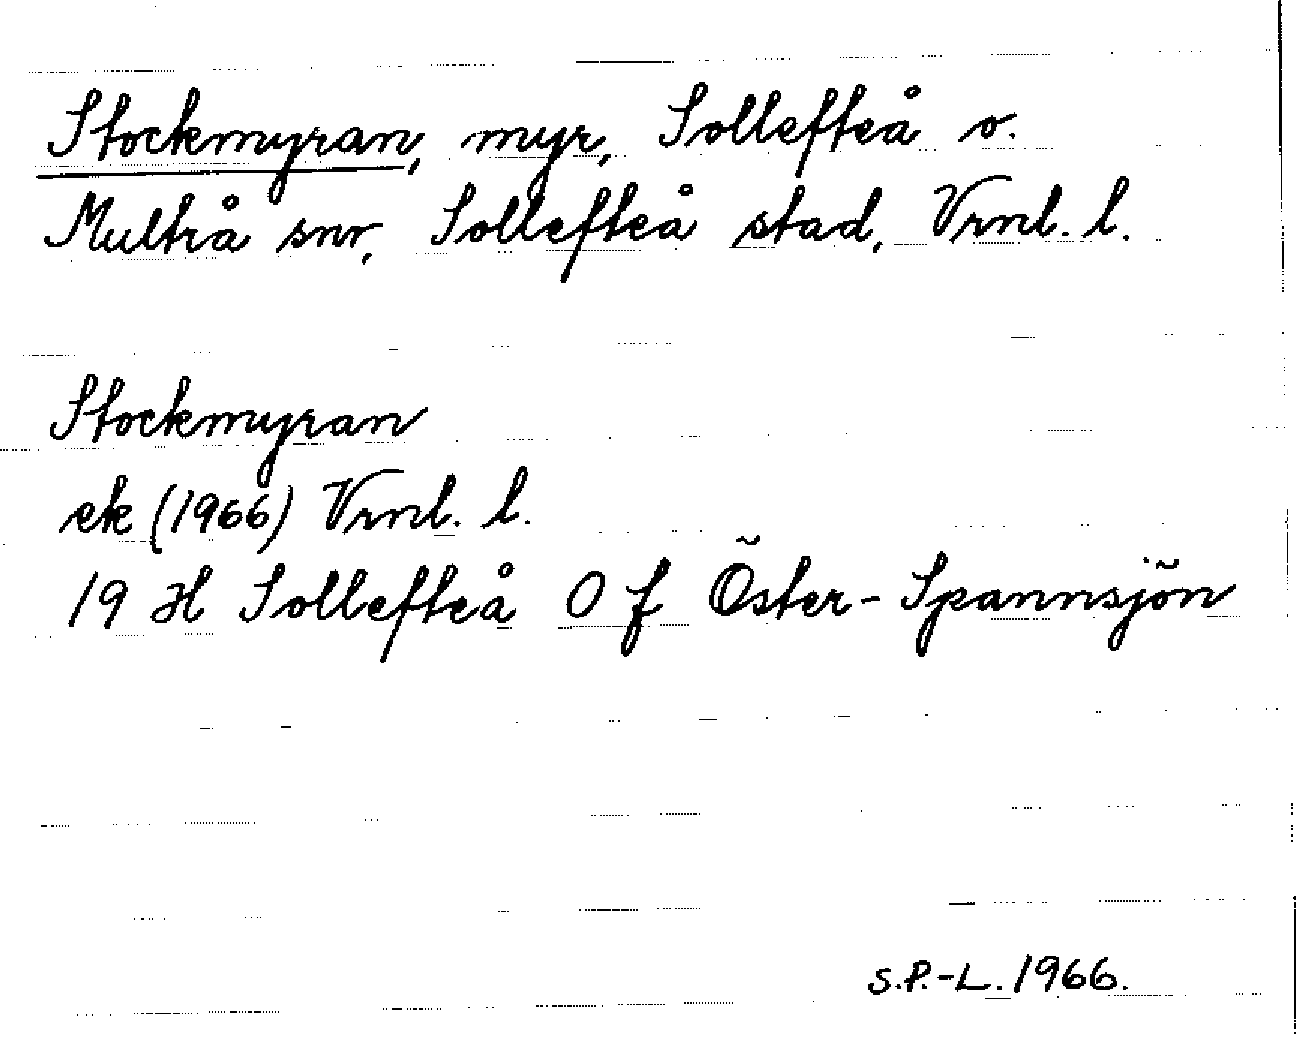 Stockmyran, myr, Sollefteå o.
Multrå snr, Sollefteå stad, Vrnl. l.
Stockmyran
ek (1966) Vrnl. l.
19 H Sollefteå O f Öster-Spannsjön
S.P.-L. 1966.